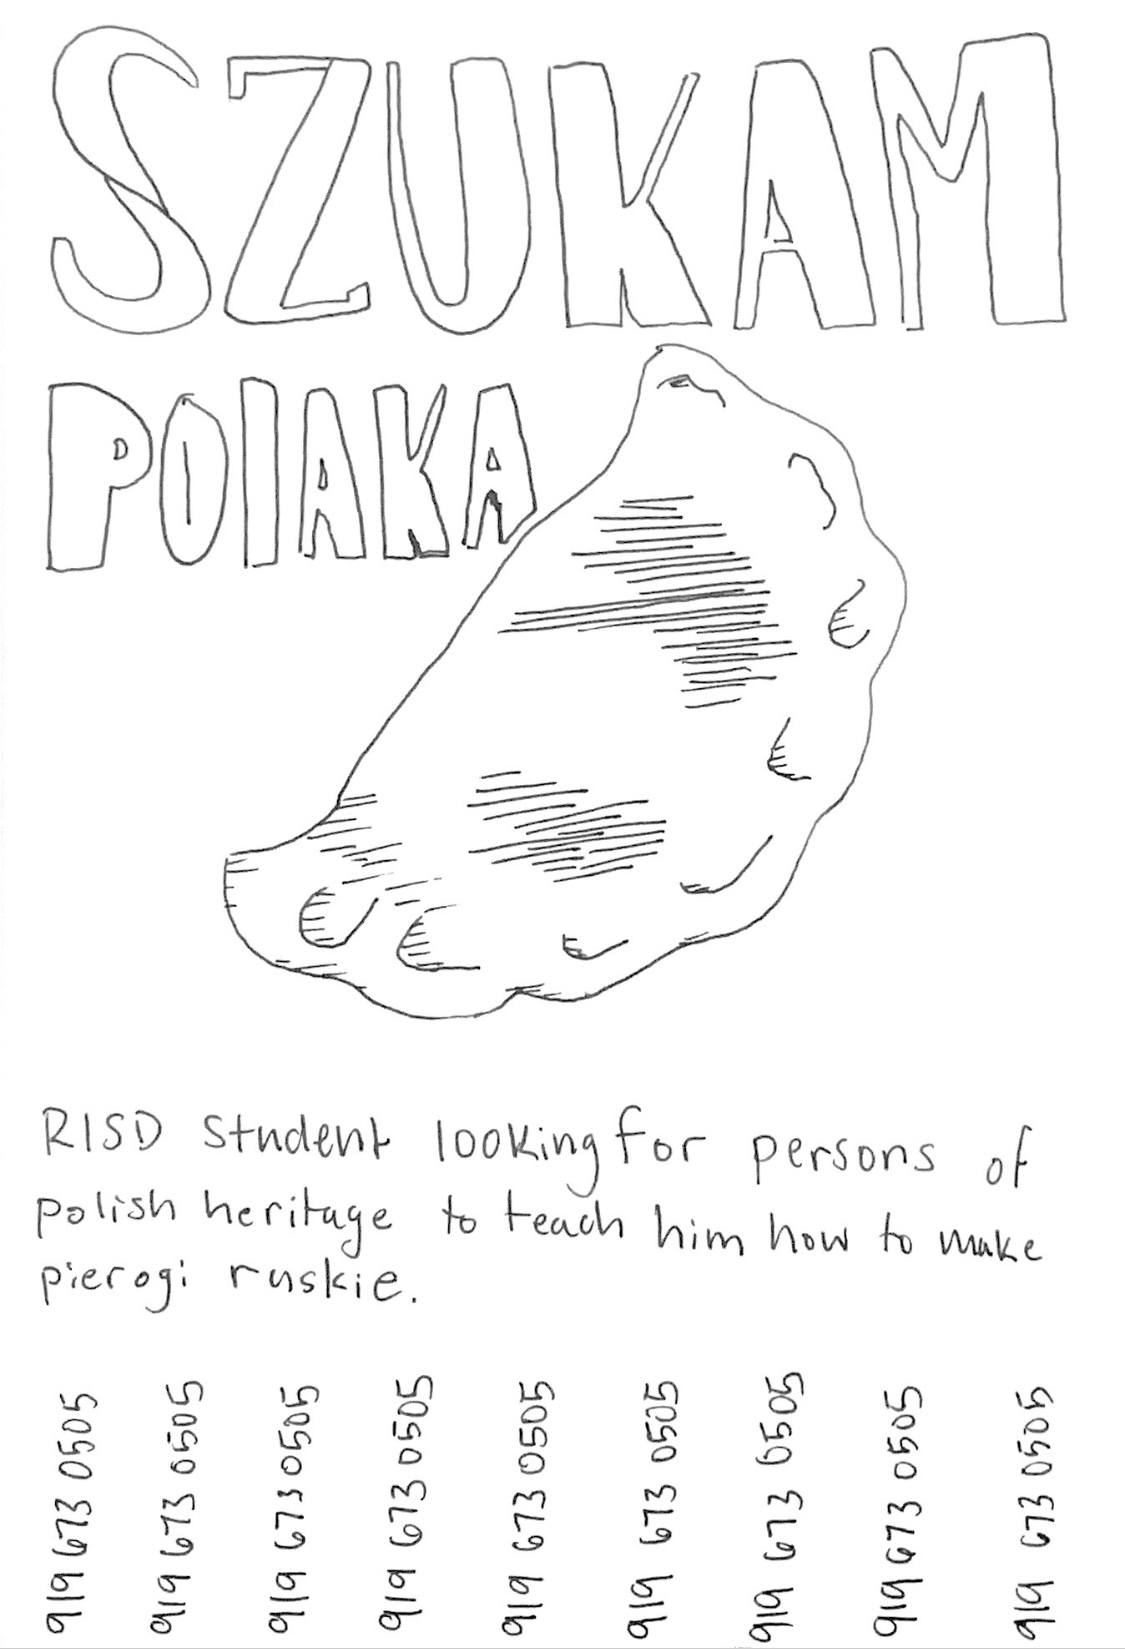 SZUKAM
POlAKA
RISD student looking for persons of
polish heritage to teach him how to make
pierogi ruskie.
919 673 0505
919 673 0505
919 673 0505
919 673 0505
919 673 0505
919 673 0505
919 673 0505
919 673 0505
919 673 0505